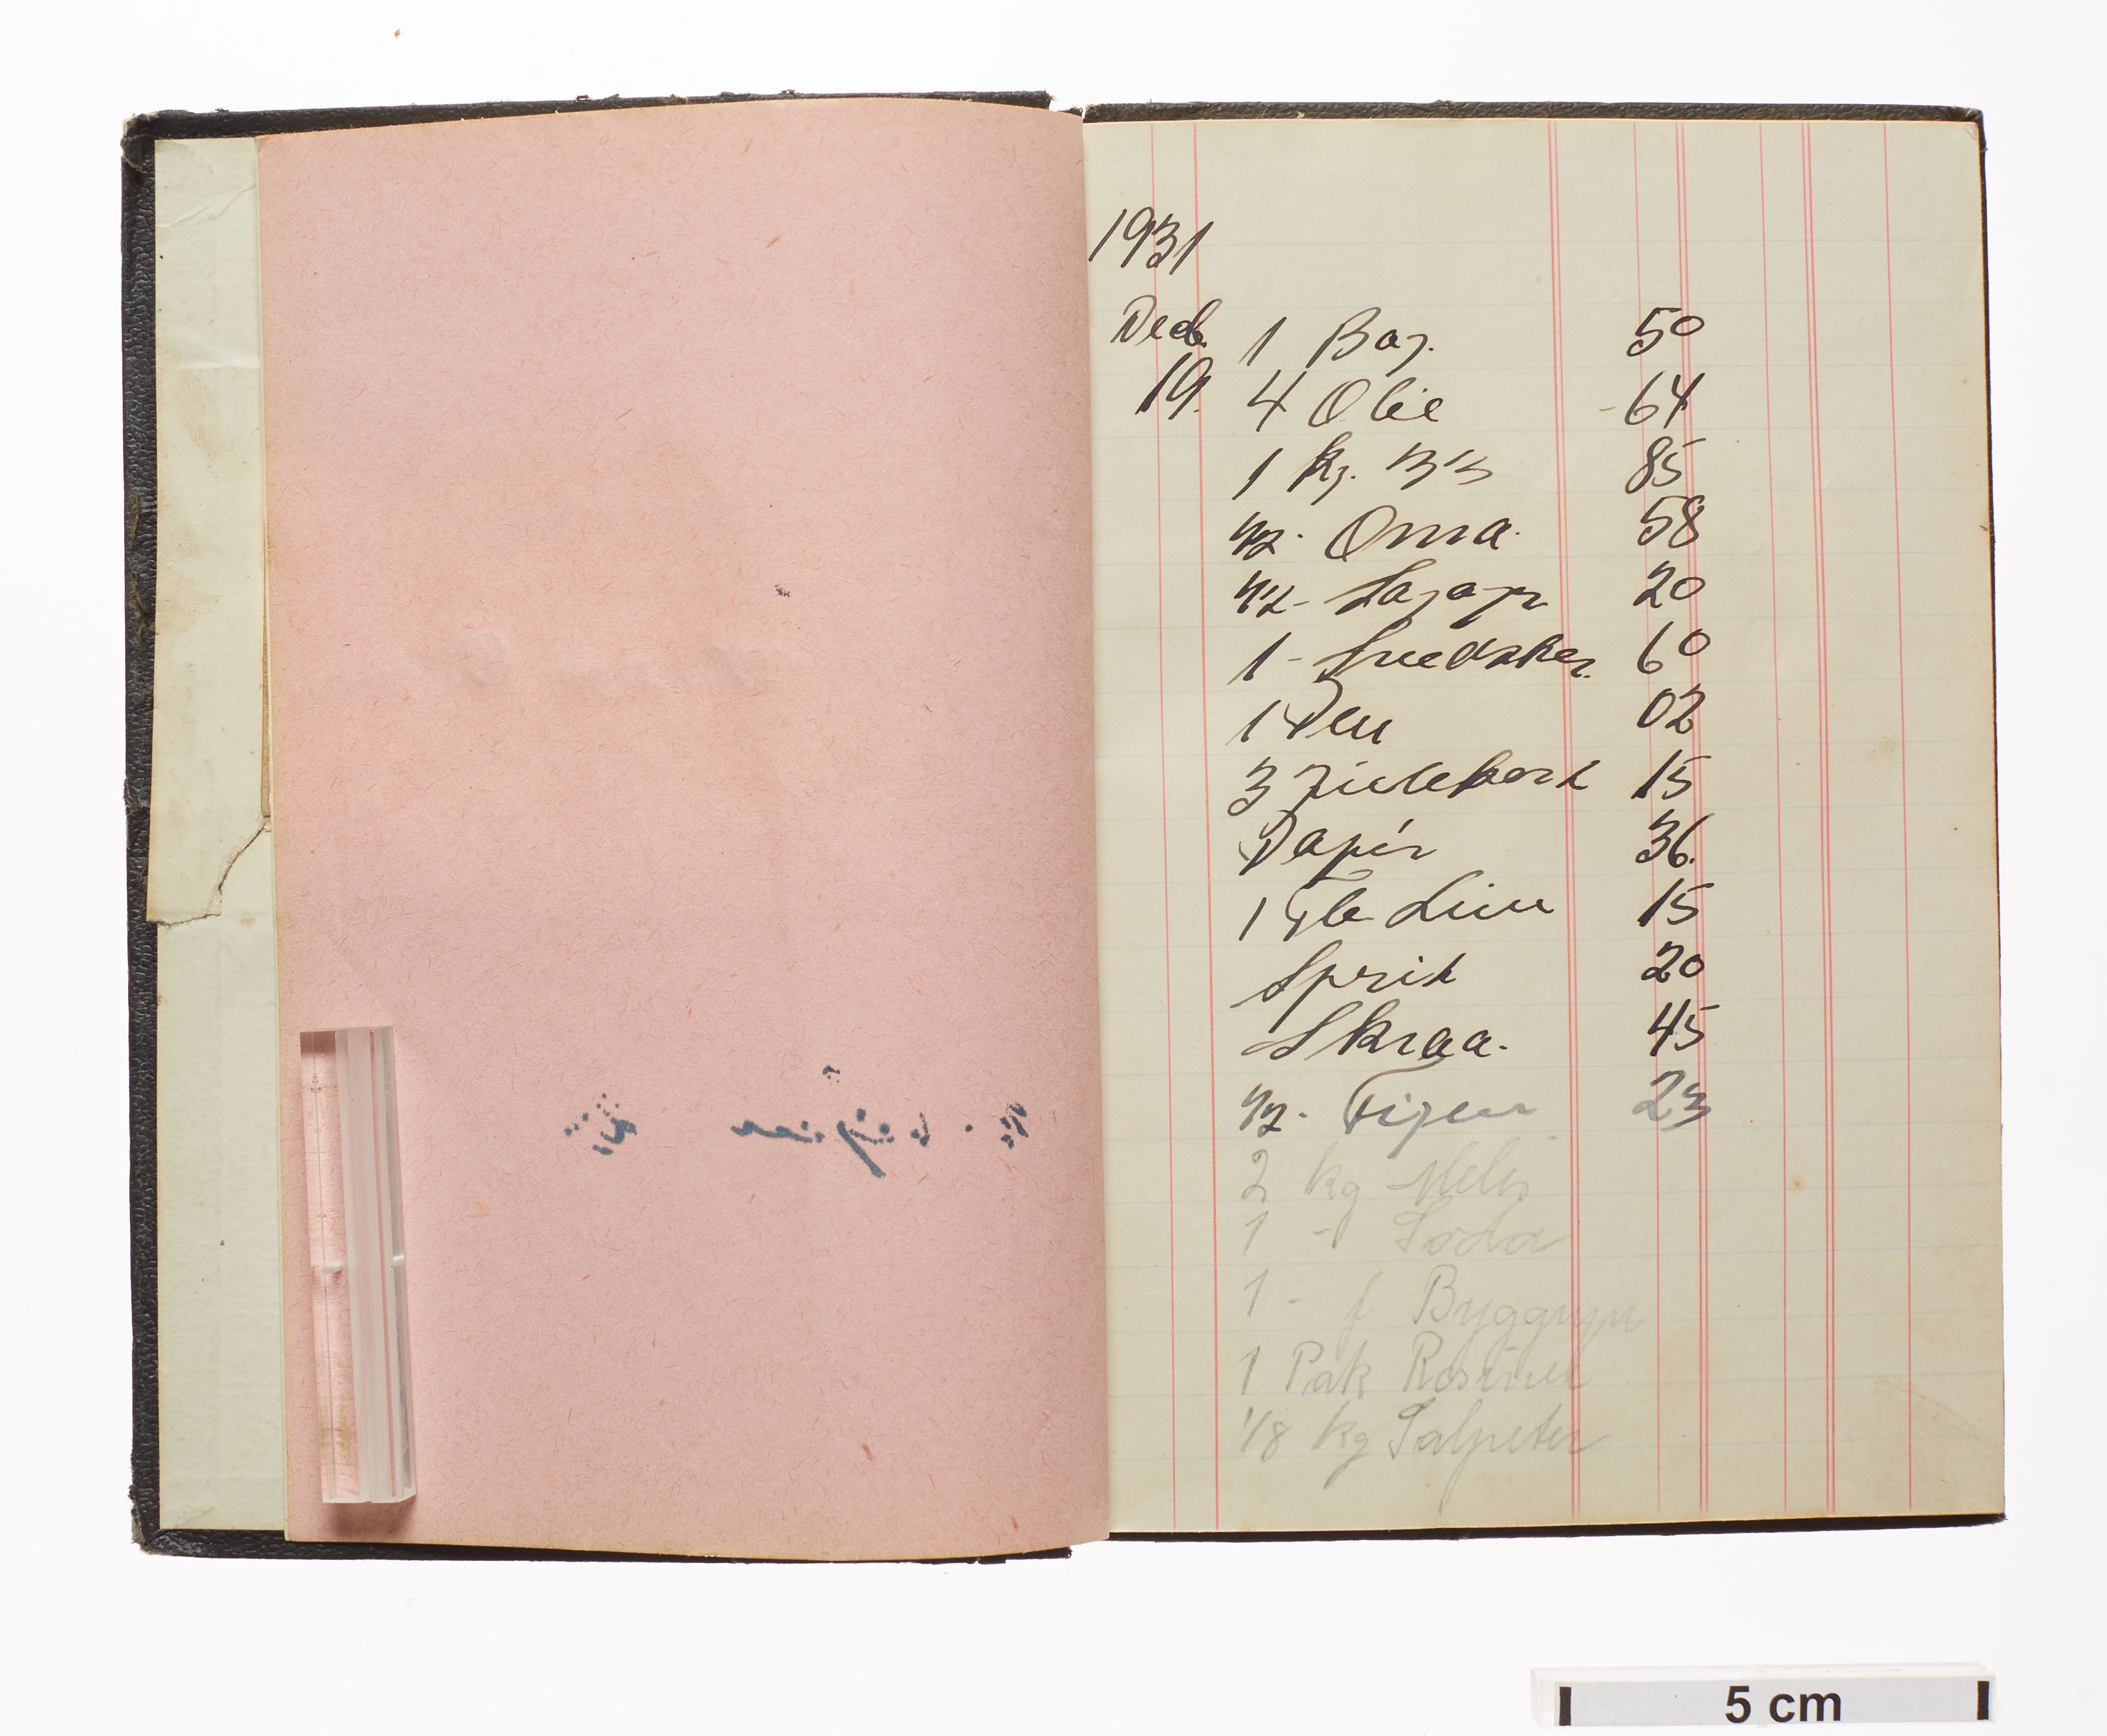 1931
Decb. 1 Bog. 50
19. 4 Olie - 64
1 Kg. 85
1/2 - Oma. 58
1/2 - Sagogr 20
1 - Svedsker. 60
1 Pen 02
3 Julekort 15
Papir 36.
1 Gl Lim 15
Sprit 20
Skraa. 45
1/2 - Figen 23
2 kg Melis
1 - Soda
1 - f Byggryn
1 Pak Rosiner
1/8 kg Salpeter
5 cm